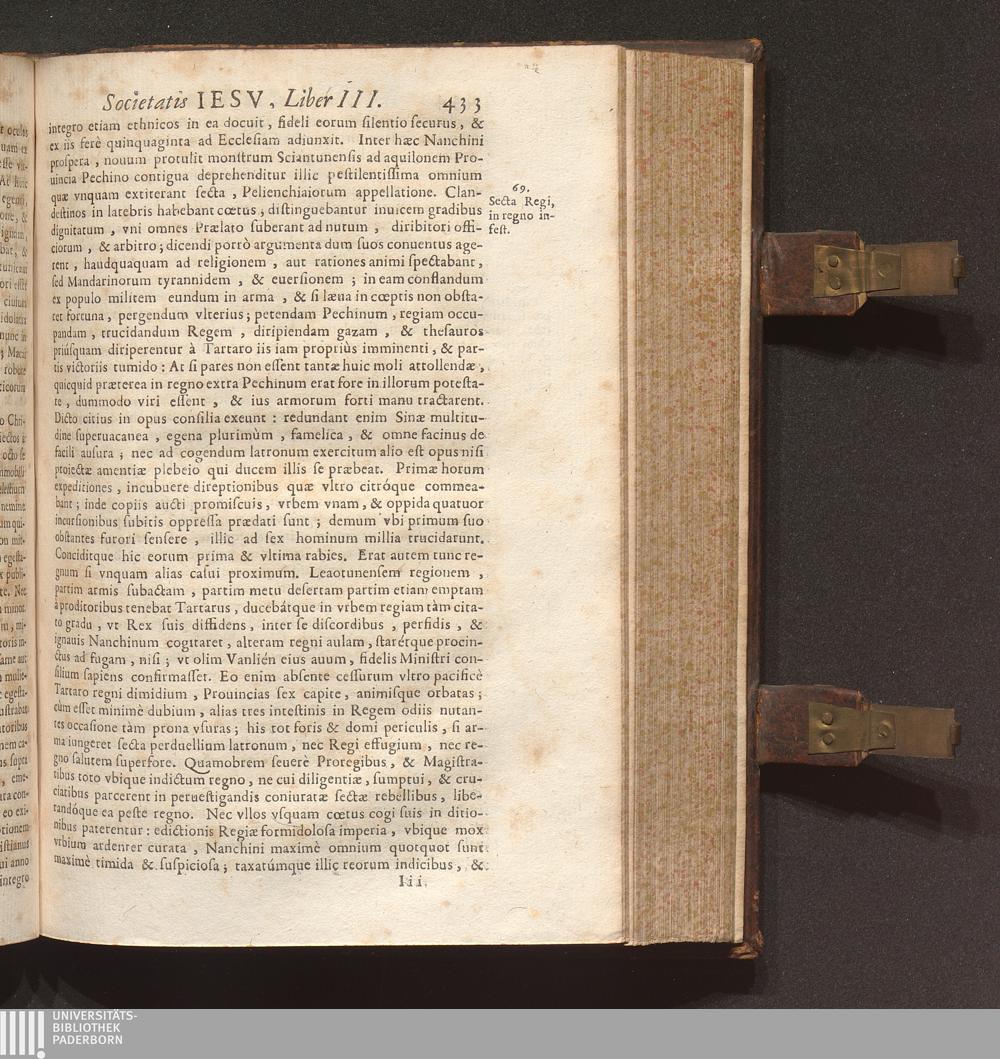 Societatis IESV, Liber III. 433
integro etiam ethnicos in ea docuit, fideli eorum silentio securus, &
ex iis ferè quinquaginta ad Ecclesiam adiunxit. Inter hæc Nanchini
prospera, nouum protulit monstrum Sciantunensis ad aquilonem Pro-
uincia Pechino contigua deprehenditur illic pestilentissima omnium
quæ vnquam extiterant secta, Pelienchiaiorum appellatione. Clan-
destinos in latebris habebant cœtus, distinguebantur inuicem gradibus
dignitatum, vni omnes Prælato suberant ad nutum, diribitori offi-
ciorum, & arbitro; dicendi porrò argumenta dum suos conuentus age-
rent, haudquaquam ad religionem, aut rationes animi spectabant,
sed Mandarinorum tyrannidem, & euersionem; in eam conflandum
ex populo militem eundum in arma, & si læua in cœptis non obsta-
ret fortuna, pergendum vlterius; petendam Pechinum, regiam occu-
pandam, trucidandum Regem, diripiendam gazam, & thesauros
priúsquam diriperentur à Tartaro iis iam propriùs imminenti, & par-
tis victoriis tumido: At si pares non essent tantæ huic moli attollendæ,
quicquid præterea in regno extra Pechinum erat fore in illorum potesta-
te, dummodo viri essent, & ius armorum forti manu tractarent.
Dicto citius in opus consilia exeunt: redundant enim Sinæ multitu-
dine superuacanea, egena plurimùm, famelica, & omne facinus de
facili ausura; nec ad cogendum latronum exercitum alio est opus nisi
proiectæ amentiæ plebeio qui ducem illis se præbeat. Primæ horum
expeditiones, incubuere direptionibus quæ vltro citróque commea-
bant; inde copiis aucti promiscuis, vrbem vnam, & oppida quatuor
incursionibus subitis oppressa prædati sunt; demum vbi primum suo
obstantes furori sensere, illic ad sex hominum millia trucidarunt.
Conciditque hic eorum prima & vltima rabies. Erat autem tunc re-
gnum si vnquam alias casui proximum. Leaotunensem regionem,
partim armis subactam, partim metu desertam partim etiam emptam
à proditoribus tenebat Tartarus, ducebátque in vrbem regiam tàm cita-
to gradu, vt Rex suis diffidens, inter se discordibus, perfidis, &
ignauis Nanchinum cogitaret, alteram regni aulam, starétque procin-
ctus ad fugam, nisi; vt olim Vanlién eius auum, fidelis Ministri con-
silium sapiens confirmasset. Eo enim absente cessurum vltro pacificè
Tartaro regni dimidium, Prouincias sex capite, animisque orbatas;
cùm esset minimè dubium, alias tres intestinis in Regem odiis nutan-
tes occasione tàm prona vsuras; his tot foris & domi periculis, si ar-
ma iungeret secta perduellium latronum, nec Regi effugium, nec re-
gno salutem superfore. Quamobrem seuerè Proregibus, & Magistra-
tibus toto vbique indictum regno, ne cui diligentiæ, sumptui, & cru-
ciatibus parcerent in peruestigandis coniuratæ sectæ rebellibus, libe-
randóque ea peste regno. Nec vllos vsquam cœtus cogi suis in ditio-
nibus paterentur: edictionis Regiæ formidolosa imperia, vbique mox
vrbium ardenter curata, Nanchini maximè omnium quotquot sunt
maximè timida & suspiciosa; taxatúmque illic reorum indicibus, &
Iii
69.
Secta Regi,
in regno in-
fest.
UNIVERSITÄTS-
BIBLIOTHEK
PADERBORN